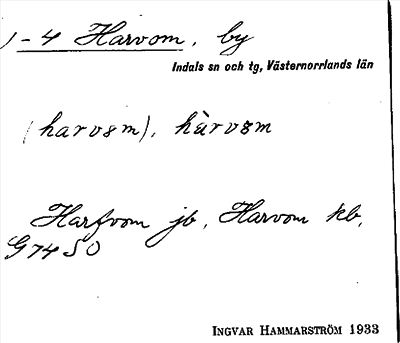 1-4 Harvom, by
Indals sn och tg, Västernorrlands län
(harvsm), hàrvsm
Harfvom jb, Harvom kb,
G74SO
INGVAR HAMMARSTRÖM 1933